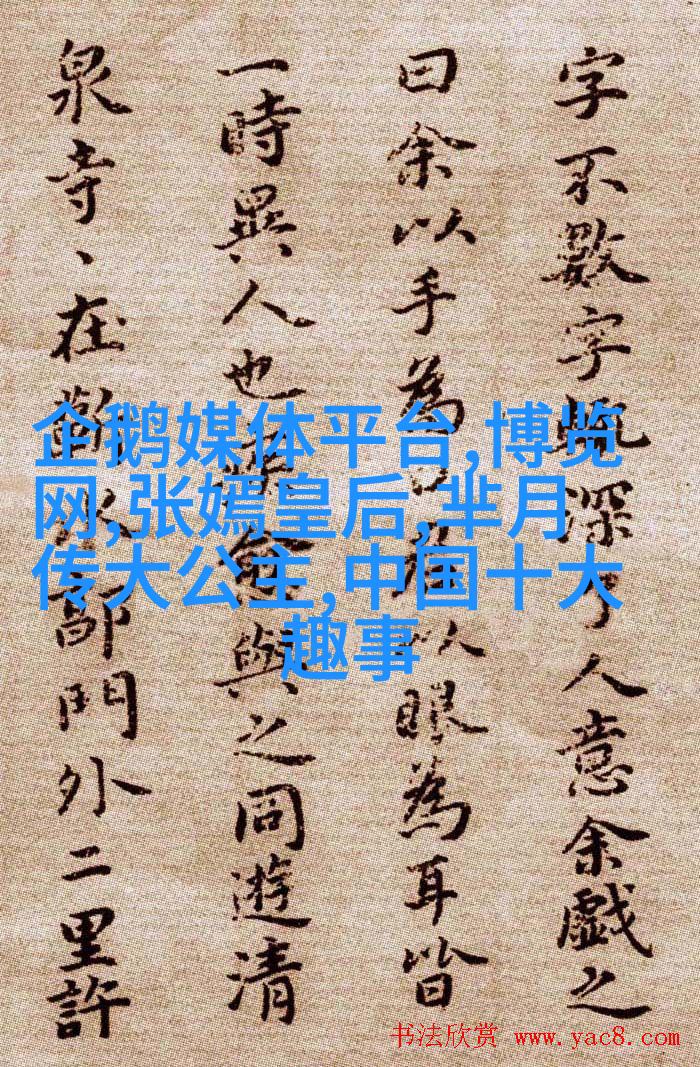 字不數字深了人意余戲之
曰余以手為以眼為耳皆
一時異人也與之同遊清
泉寺、在蘄水郭門外二里許
企鹅媒体平台,博览
网,张嫣皇后,芈月
传大公主,中国十大
趣事
书法欣赏 www.yac8.com